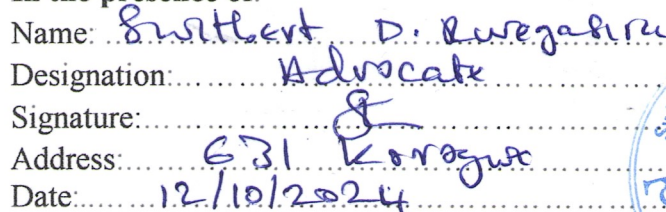 In the presence of:
Name: Swithbert D. Rwegasira
Designation: Advocate
Signature:
Address: 631 Korogwe
Date: 12/10/2024